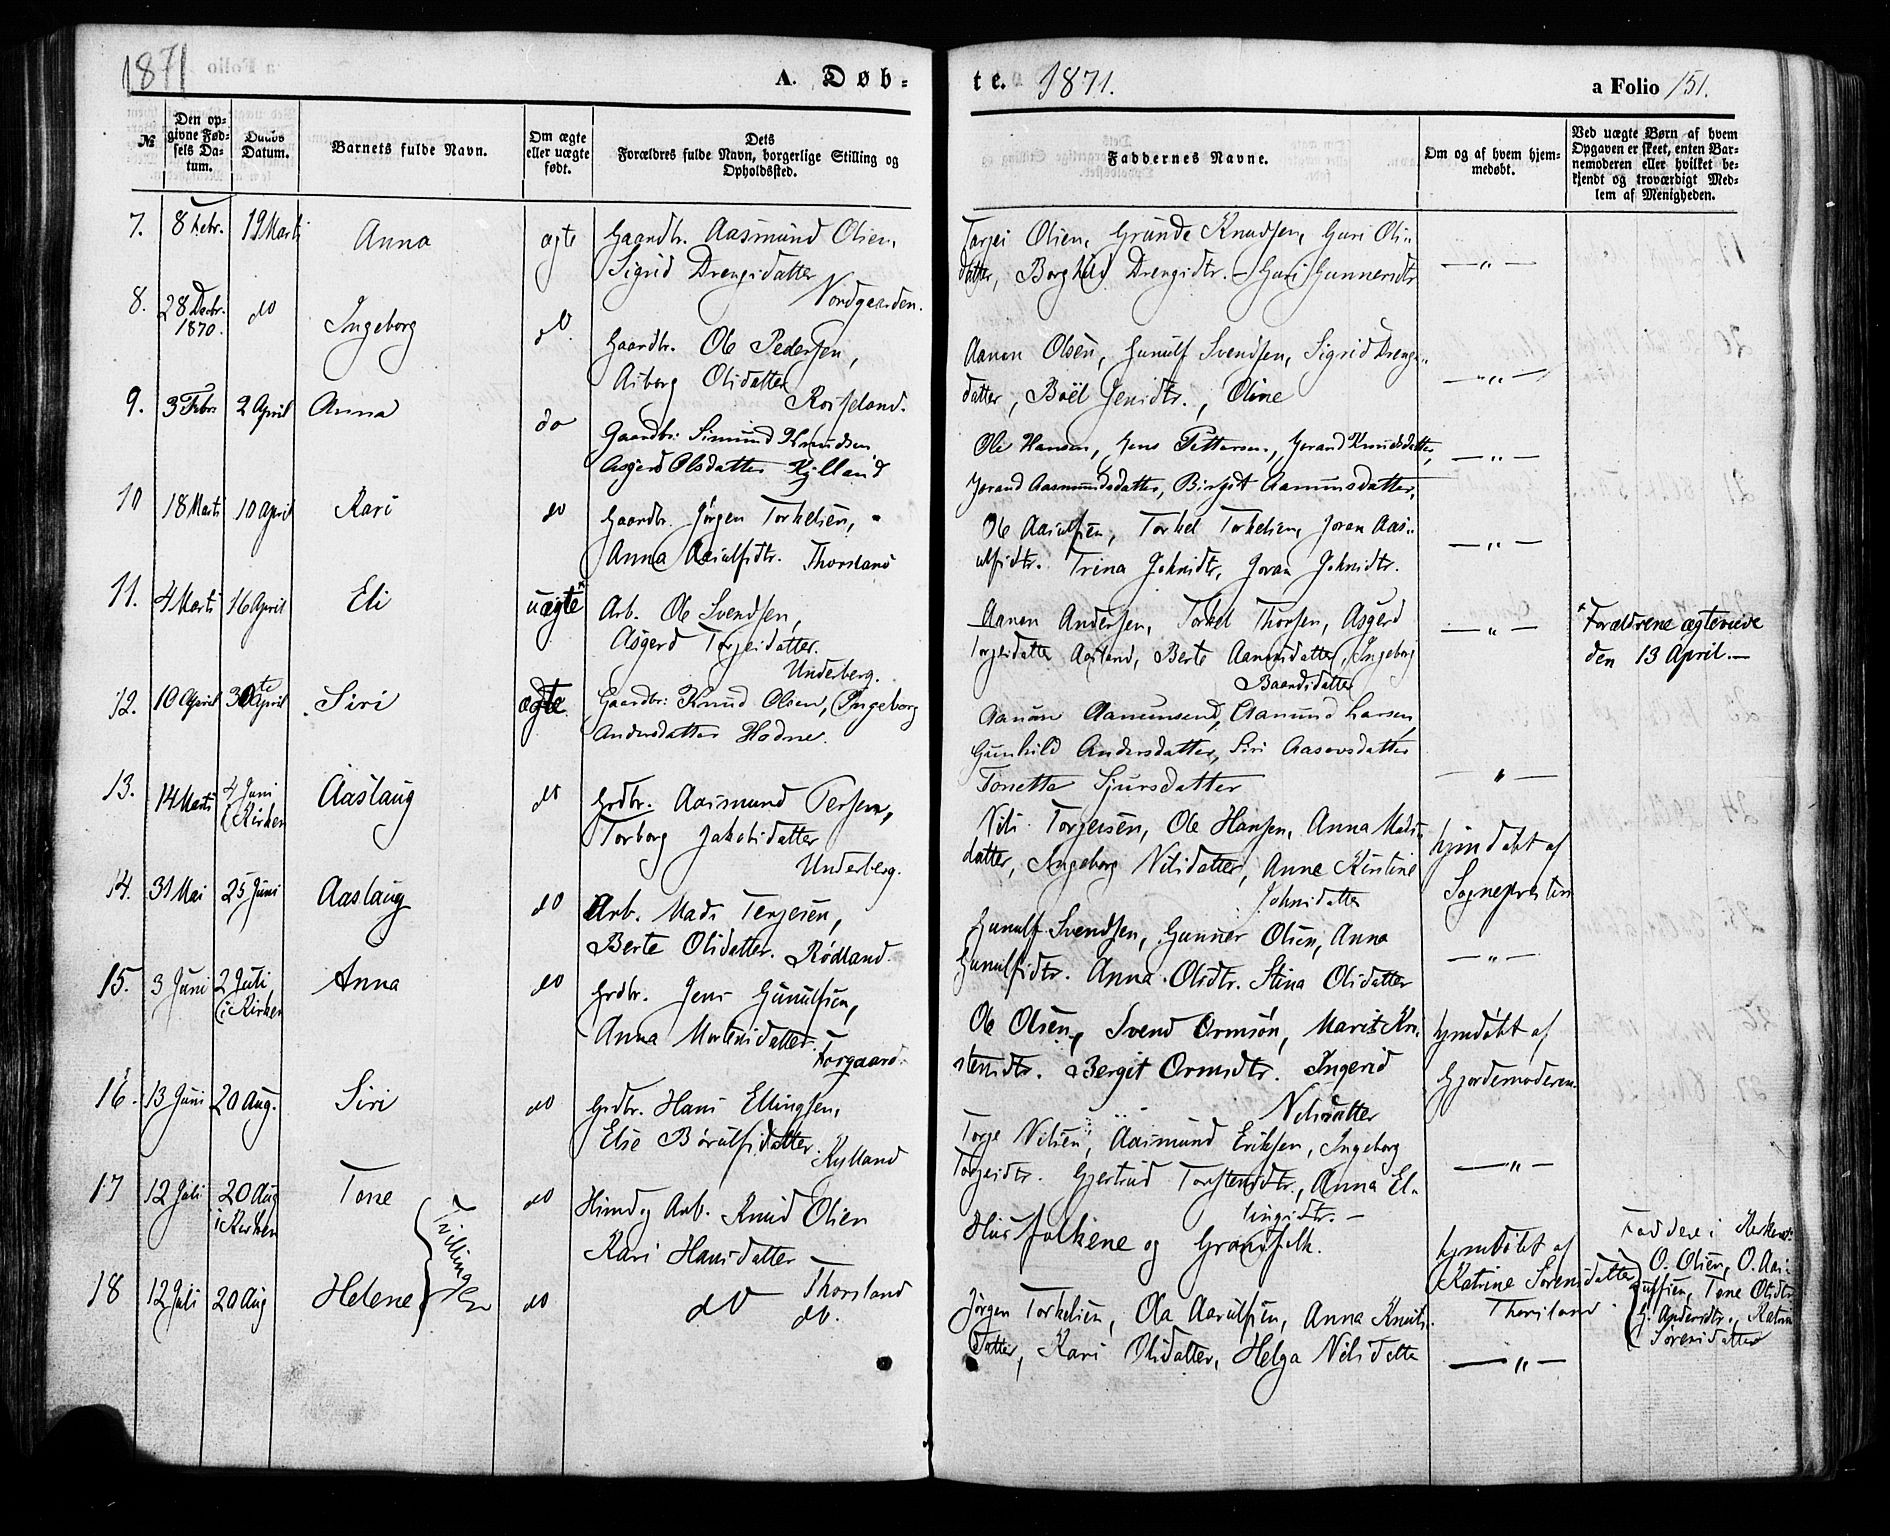 1871
A. Døb-
№
Den op-
givne Fød-
sels Da-
tum.
Daabs
Datum.
Barnets fulde Navn.
Om ægte
eller uægte
født.
Dets
Forældres fulde Navn, borgerlige Stilling og
Opholdssted.
7.
8 Febr.
19 Marts
Anna
ægte
Gaardbr. Aasmund Olsen,
Sigrid Drengsdatter
Nordgaarden.
8.
28 Decbr.
1870.
do
Ingeborg
do
Gaardbr. Ole Pedersen,
Asborg Olsdatter
Rosseland.
9.
3 Febr
2 April
Anna
do
Gaardbr: Simund Knudsen
Asgerd Olsdatter Kylland
10
18 Marts
10 April
Kari
do
Gaardbr. Jørgen Torkelsen,
Anna Aasulfsdtr. Thorsland
11.
4 Marts
16 April
Eli
uægte*
Arb. Ole Svendsen,
Asgerd Torjeisdatter.
Underberg.
12.
10 April
30te April
Siri
ægte
Gaardbr: Knud Olsen, Ingeborg
Andersdatter Hodne.
13.
14 Marts
4 Juni
i Kirken
Aaslaug
do
Grdbr. Aasmund Tersen,
Torborg Jakobsdatter
Underberg.
14.
31 Mai
25 Juni
Aaslaug
do
Arb. Mads Terjesen,
Berte Olsdatter. Rødland.
15.
3 Juni
2 Juli
i Kirken
Anna
do
Grdbr. Jens Gunulfsen,
Anna Mortensdatter.
Torgaard.
16.
13 Juni
20 Aug.
Siri
do
Grdbr. Hans Ellingsen,
Else Børulfsdatter.
Kylland
17
12 Juli
20 Aug
i Kirken
Tone
Tvillinger
do
Huusm. og Arb. Knud Olsen
Kari Hansdatter
Thorsland
18
12 Juli
20 Aug
Helene
do
do
do.
te. 1871.
a Folio 151.
Faddernes Navne.
Om og af hvem hjem-
medøbt.
Ved uægte Børn af hvem
Opgaven er skeet, enten Bar-
nemoderen eller hvilket be-
kjendt og troværdigt Med-
lem af Menigheden.
Tarjei Olsen, Grunde Knudsen, Guri Ols-
datter, Borghild Drengsdtr. - Guri Gunnersdtr
— „ —
Aanon Olsen, Gunulf Svendsen, Sigrid Drengs-
datter, Boël Jensdtr., Oline
— „ —
Ole Hansen, Jens Pettersen, Jorand Knudsdatter,
Jorand Aasmundsdatter, Birgit Aanunsdatter.
— „ —
Ole Aasulfsen, Torkel Torkelsen, Joran Aas-
ulfsdtr. Trina Johnsdtr, Joran Johnsdtr.
— „ —
Aanon Andersen, Torkel Thorsen, Asgerd
Torjeisdatter Aasland, Berte Aanonsdatter, Ingeborg
Baardsdatter
— „ —
* Forældrene ægteviede
den 13 April. —
Aanon Aanunsend, Aanund Larsen
Gunhild Andersdatter, Siri Aasovsdatter
Tonette Sjursdatter
— „ —
Nils Torjersen, Ole Hansen, Anna Mads-
datter, Ingeborg Nilsdatter, Anne Kirstine
Johnsdatter
hjemdøbt af
Sognepresten
Gunulf Svendsen, Gunner Olsen, Anna
Gunulfsdtr. Anna Olsdtr. Stina Olsdatter
— „ —
Ole Olsen, Svend Ormsøn, Marit Kri-
stensdtr. Bergit Ormsdtr. Ingerid
Nilsdatter
hjemdøbt af
Gjordemoderen
Torje Nilsen, Aasmund Eriksen, Ingeborg
Torjeisdtr. Gjertrud Torstensdtr., Anna El-
lingsdtr. —
— „ —
Husfolkene og Grandfolk.
hjemdøbt af
Katrine Sørensdatter
Thorsland.
Faddere i Kirken:
O. Olsen, O. Aas-
ulfsen, Tone Olsdtr
G. Andersdtr., Katrin
Sørensdatter
Jørgen Torkelsen, Ola Aasulfsen, Anna Knuts-
datter, Kari Olsdatter, Helga Nilsdatter
— „ —